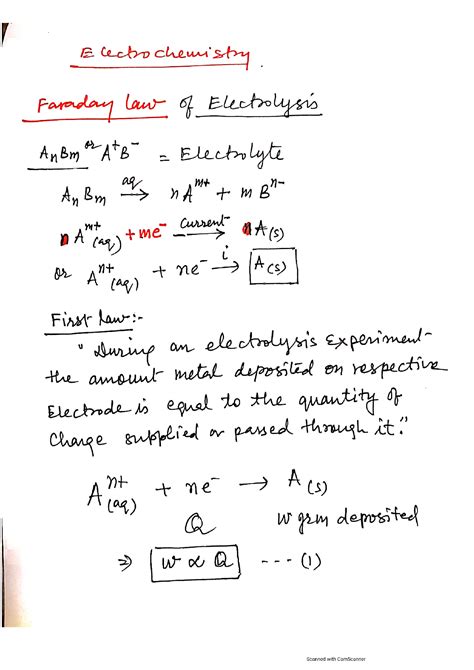 Electrochemistry.
Faraday Law of Electrolysis
AnBm or A⁺B⁻ = Electrolyte
AnBm aq→ nAᵐ⁺ + mBⁿ⁻
nAᵐ⁺(aq) + me⁻ Current→ nA(s)
or Aⁿ⁺(aq) + ne⁻ i→ A(s)
First Law:-
"During an electrolysis experiment
the amount metal deposited on respective
Electrode is equal to the quantity of
Charge supplied or passed through it."
Aⁿ⁺(aq) + ne⁻ → A(s)
Q W grm deposited
⇒ W ∝ Q ---(1)
Scanned with CamScanner